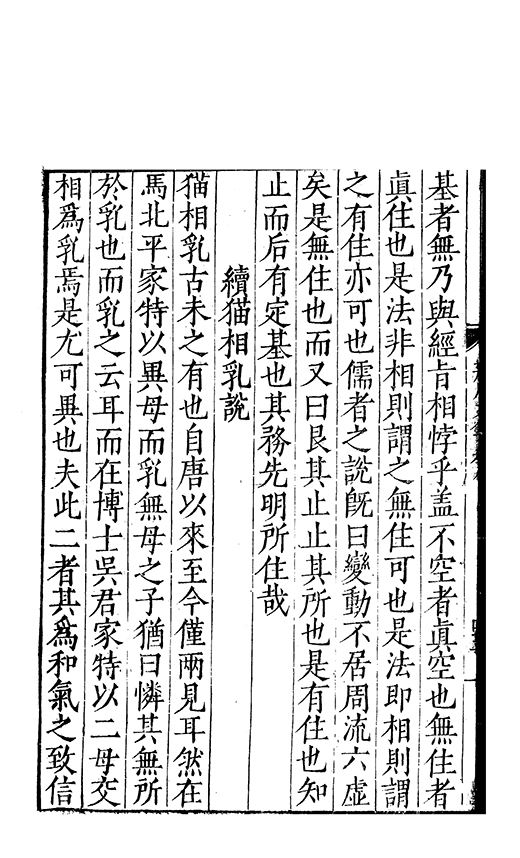 基者無乃與經旨相悖乎盖不空者眞空也無住者
眞住也是法非相則謂之無住可也是法即相則謂
之有住亦可也儒者之說旣曰變動不居周流六虛
矣是無住也而又曰艮其止止其所也是有住也知
止而后有定基也其務先明所住哉
續猫相乳說
猫相乳古未之有也自唐以來至今僅兩見耳然在
馬北平家特以異母而乳無母之子猶曰憐其無所
於乳也而乳之云耳而在博士吳君家特以二母交
相爲乳焉是尤可異也夫此二者其爲和氣之致信